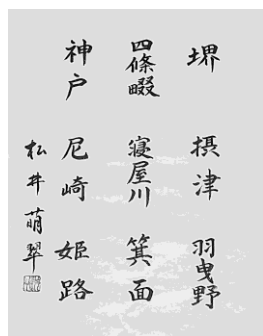 堺　摂津　羽曳野
四條畷　寝屋川　箕面
神戸　尼崎　姫路
松井萌翠